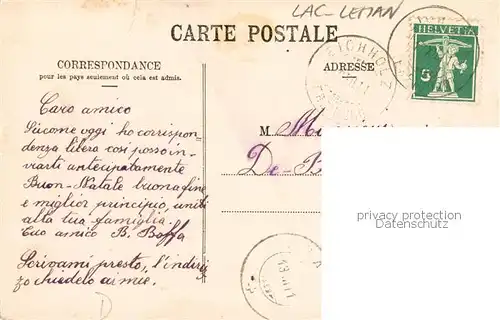 LAC-LEMAN
CARTE POSTALE
HELVETIA
5
EICHHOLZ
CORRESPONDANCE
pour les pays seulement où cela est admis.
ADRESSE
Caro amico
Siccome oggi ho corrispon-
denza libera così posso in-
viarti antecipatamente
Buon-Natale buona fine
e miglior principio, uniti
alla tua famiglia.
tuo amico B. Boffa
Scrivami presto, l'indiriz
zo chiedelo ai mie.
M.
De-B
privacy protection
Datenschutz
D